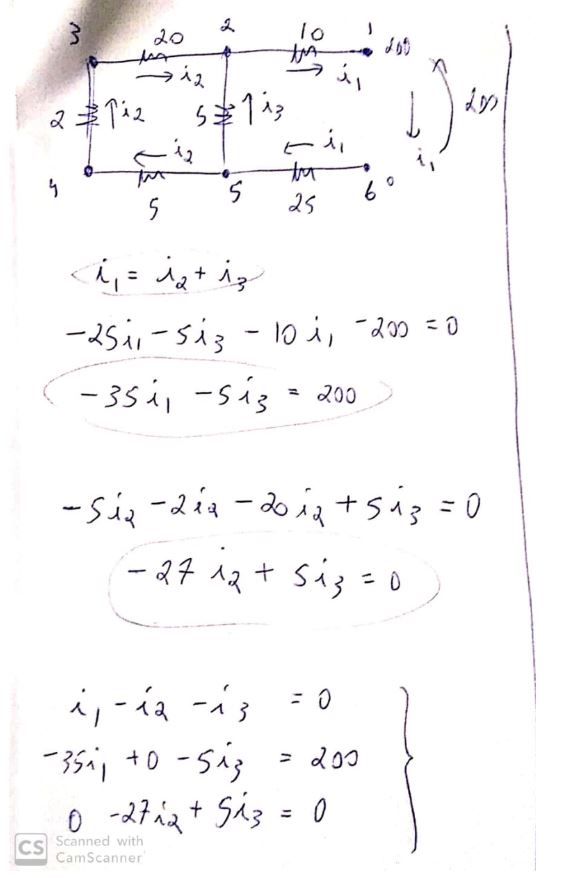 3 20 2 10 1 200
→ i₂ → i₁
2 ↑i₂ 5 ↑i₃ ↓ 200
← i₂ ← i₁ i₁
4 5 5 25 6 0
i₁ = i₂ + i₃
-25i₁ - 5i₃ - 10i₁ - 200 = 0
-35i₁ - 5i₃ = 200
-5i₂ - 2i₂ - 20i₂ + 5i₃ = 0
-27i₂ + 5i₃ = 0
i₁ - i₂ - i₃ = 0
-35i₁ + 0 - 5i₃ = 200
0 - 27i₂ + 5i₃ = 0
CS Scanned with
CamScanner